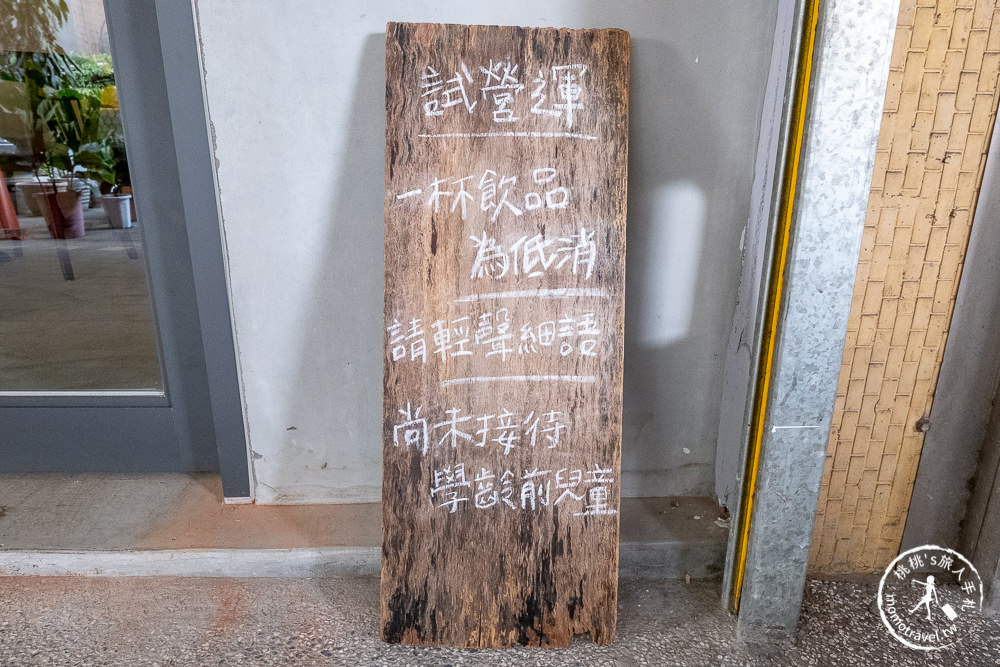 試營運
一杯飲品
為低消
請輕聲細語
尚未接待
學齡前兒童
桃桃's旅人手札
momotravel.tw